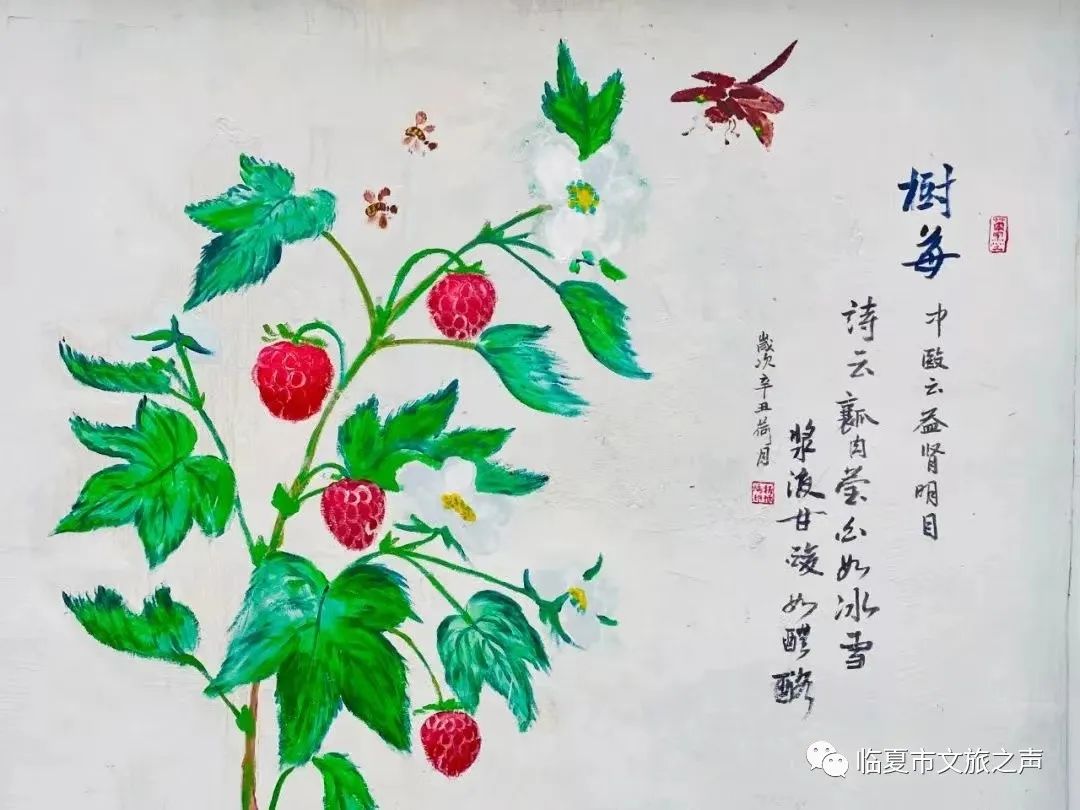 树莓
中医云益肾明目
诗云瓤肉莹白如冰雪
浆液甘酸如醴酪
岁次辛丑荷月
临夏市文旅之声